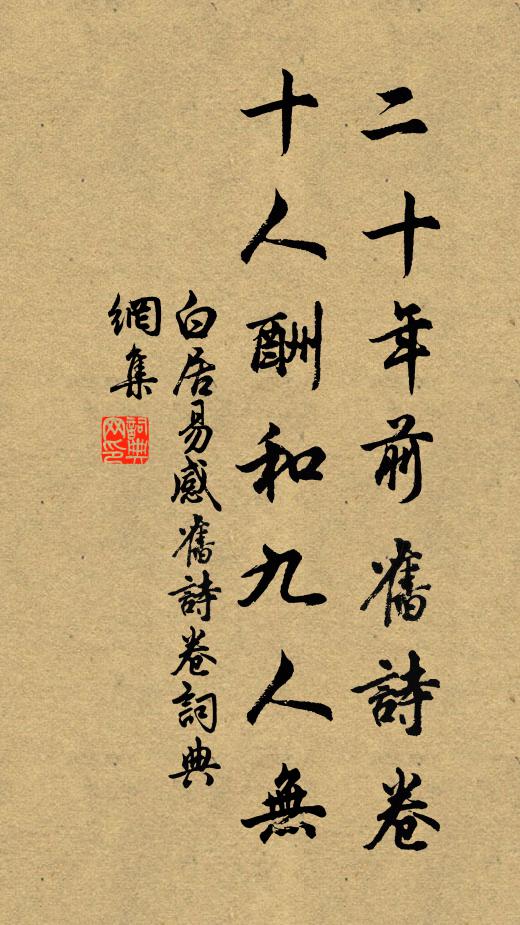 二十年前舊詩卷
十人酬和九人無
白居易感舊詩卷詞典
網集
詞典
网印